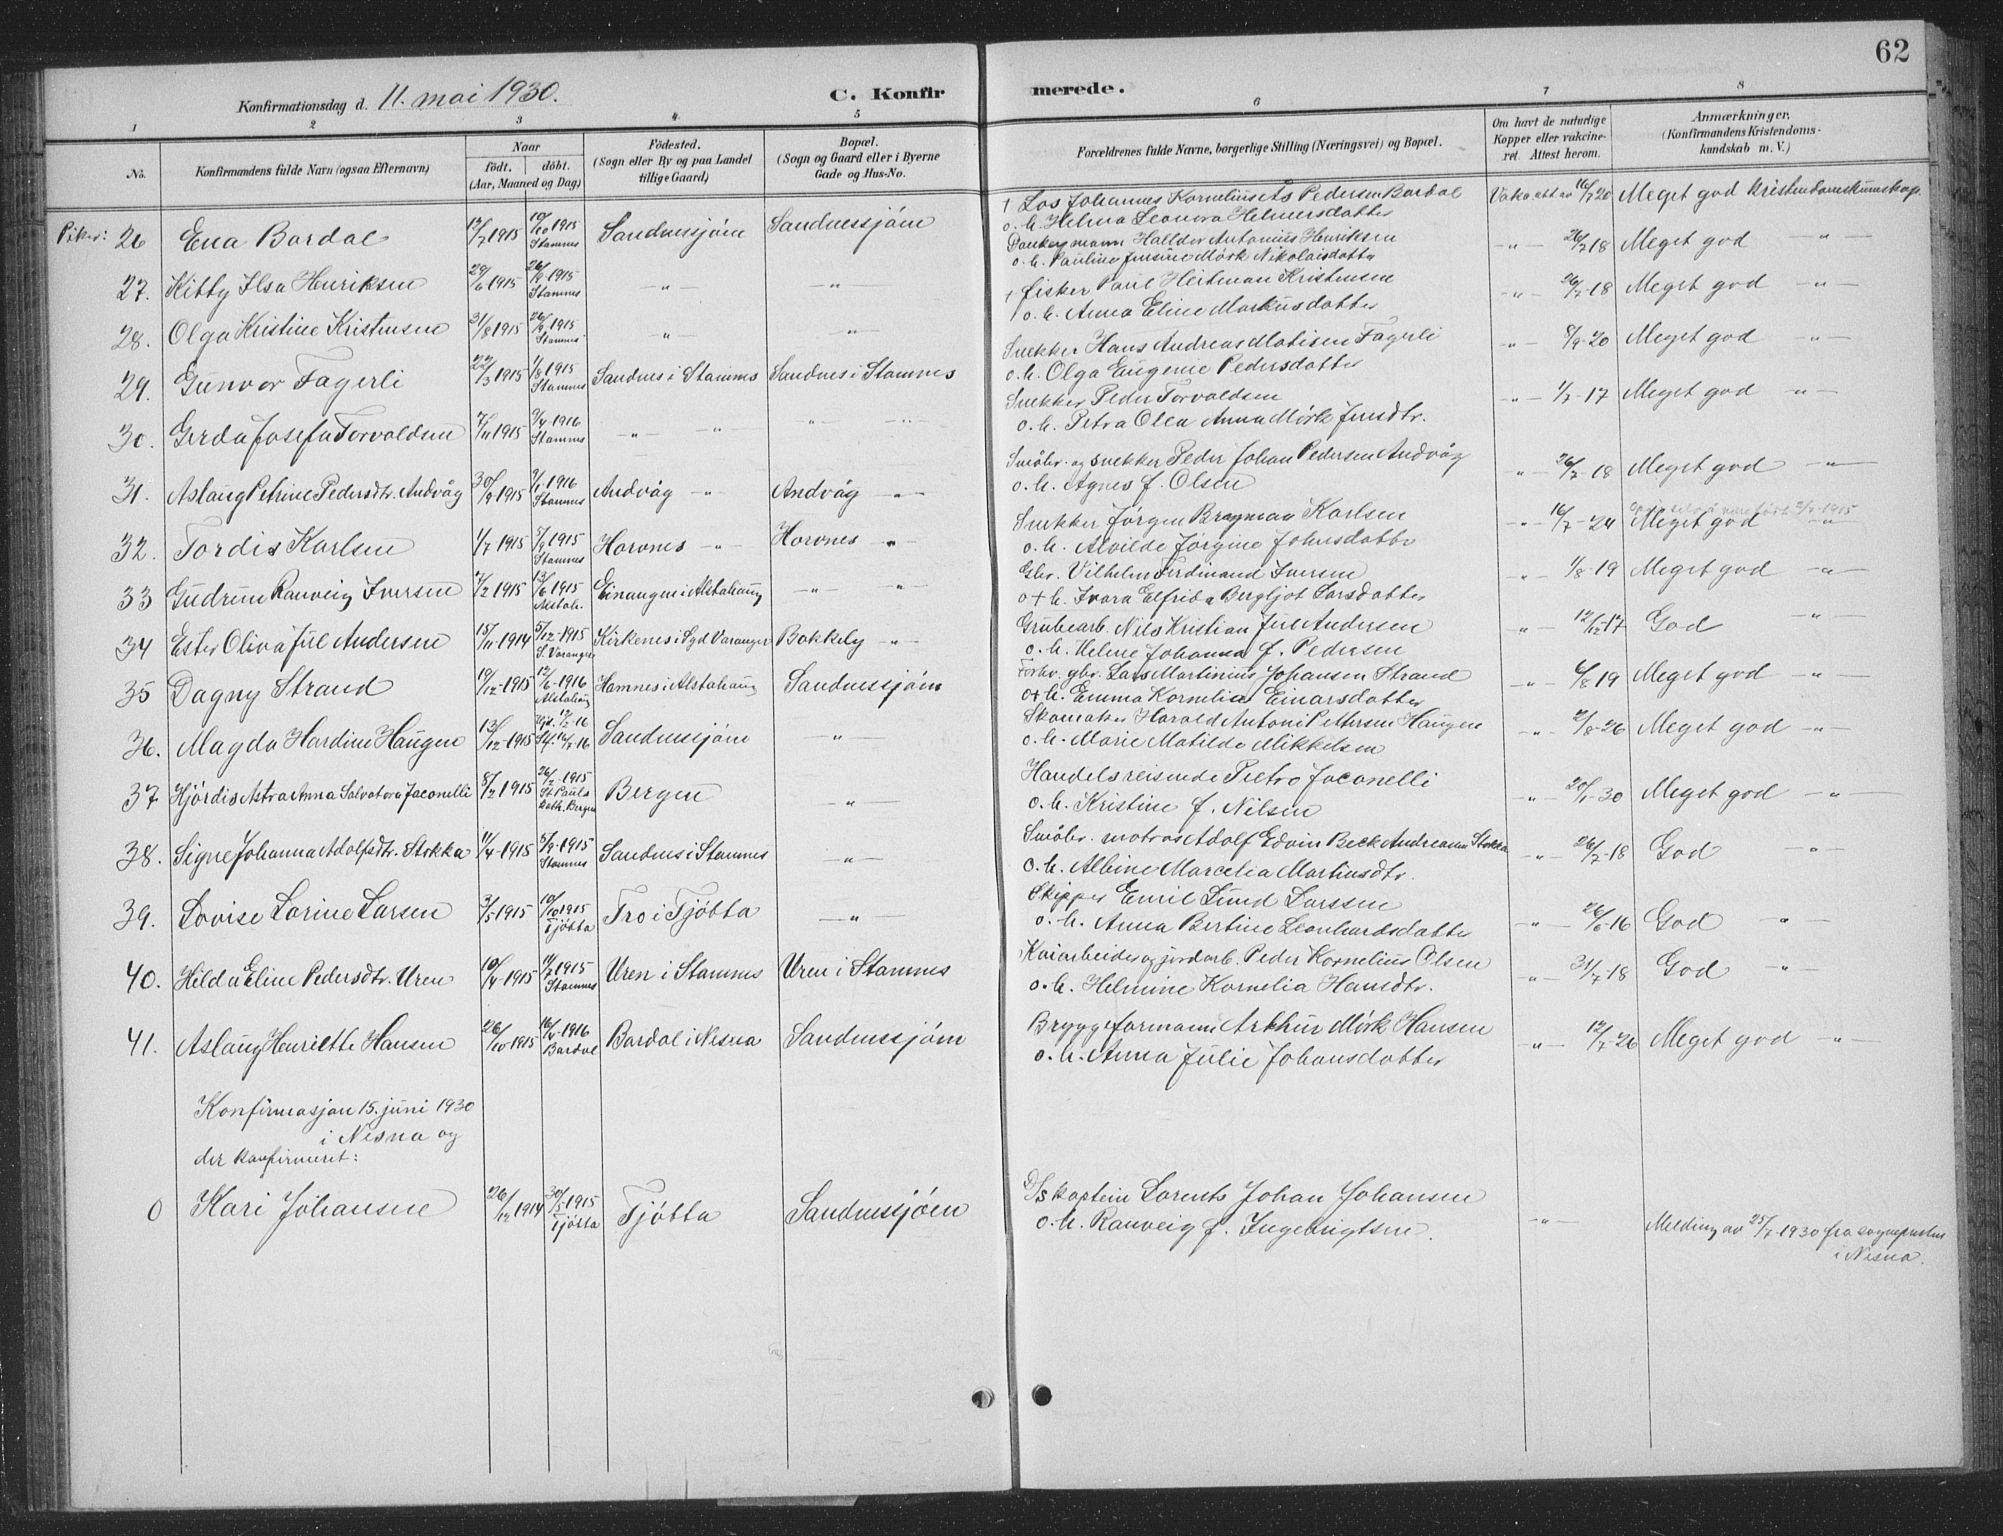 62
Konfirmationsdag d. 11. mai 1930. C. Konfirmerede.
1 2 3 4 5 6 7 8
No. Konfirmandens fulde Navn (ogsaa Efternavn) Naar født. døbt. (Aar, Maaned og Dag) Fødested. (Sogn eller By og paa Landet tillige Gaard) Bopæl. (Sogn og Gaard eller i Byerne Gade og Hus-No. Forældrenes fulde Navne, borgerlige Stilling (Næringsvei) og Bopæl. Om havt de naturlige Kopper eller vakcineret. Attest herom. Anmærkninger. (Konfirmandens Kristendomskundskab m. V.)
Piker: 26 Ena Bardal 12/7 1915 10/10 1915 Stamnes Sandnessjøen Sandnessjøen + Los Johannes Kornelius Ats Pedersen Bardal Vaks. att av 16/7 20 Meget god kristendomskunskap.
o. h. Helma Leonora Helmersdatter
27. Kitty Elsa Henriksen 29/6 1915 26/9 1915 Stamnes -"- -"- Halldor Antonius Henriksen -"- 26/7 18 Meget god -"-
o. h. Pauline Jensine Mørk Nikolaisdatter
28. Olga Kristine Kristensen 31/8 1915 26/9 1915 Stamnes -"- -"- + fisker Paul Heitman Kristensen -"- 26/7-18 Meget god -"-
o. h. Anna Eline Markusdatter
29. Gunvor Fagerli 22/3 1915 1/8 1915 Stamnes Sandnes i Stamnes Sandnes i Stamnes Snekker Hans Andreas Matisen Fagerli -"- 8/9-20 Meget god -"-
o. h. Olga Eugenie Pedersdatter
30. Gerda Josefa Torvaldsen 7/11 1915 9/4 1916 Stamnes -"- -"- -"- -"- Snekker Peder Torvaldsen -"- 1/7-17 Meget god -"-
o. h. Petra Olea Anna Mørk Jensdtr.
31. Aslaug Petrine Pedersdtr. Andvåg 30/9 1915 9/1 1916 Stamnes Andvåg -"- Andvåg -"- Småbr. og snekker Peder Johan Pedersen Andvåg -"- 26/7-18 Meget god -"-
o. h. Agnes f. Olsen
32. Tordis Karlsen 4/7 1915 5/9 1915 Stamnes Horvnes -"- Horvnes -"- Snekker Jørgen Bragman Karlsen -"- 16/7-24 Meget god -"-
o. h. Alvilde Jørgine Johnsdatter
33 Gudrun Ranveig Iversen 7/2 1915 13/6 1915 Alstah. Einangen i Alstahaug -"- -"- Gbr. Vilhelm Ferdinand Iversen -"- 1/8-19 Meget god -"-
o + h. Ivara Elfrida Bergljot Larsdatter
34 Ester Oliva Jul Andersen 15/11 1914 5/12-1915 S. Varanger Kirkenes i Syd Varanger Bakkely -"- Grubearb. Nils Kristian Jul Andersen -"- 12/12-17 God -"-
o. h. Helene Johanna f. Pedersen
35 Dagny Strand 19/12-1915 12/6-1916 Alstahaug Hamnes i Alstahaug Sandnessjøen Forhv. gbr. Lars Martinius Johansen Strand -"- 6/8 19 Meget god -"-
o + h. Emma Kornelia Einarsdatter
36. Magda Hardine Haugen 13/12-1915 Hjd. 12/2-16 St. 16/7-16 Sandnessjøen -"- Skomaker Harald Antoni Pettersen Haugen -"- 2/8-26 Meget god -"-
o. h. Marie Matilde Mikkelsen
37 Hjørdis Astra Anna Salvatora Jaconelli 8/2 1915 26/2-1915 St. Pauls kath. Bergen Bergen -"- Handelsreisende Pietro Jaconelli -"- 20/1-30 Meget god -"-
o. h. Kristine f. Nilsen
38. Signe Johanna Adolfsdtr. Stokka 11/4-1915 5/9-1915 Stamnes Sandnes i Stamnes -"- Småbr. matros Adolf Edvin Beck Andreassen Stokka -"- 26/7-18 God -"-
o. h. Albine Marcelia Martinsdtr.
39. Lovise Larine Larsen 3/5 1915 10/10 1915 Tjøtta Tro i Tjøtta -"- Skipper Emil Lund Larssen -"- 26/6-16 God -"-
o. h. Anna Bertine Leonhardsdatter
40. Hilda Eline Pedersdtr. Uren 10/4-1915 11/7 1915 Stamnes Uren i Stamnes Uren i Stamnes Kaiarbeider og jordarb. Peder Kornelius Olsen -"- 31/7-18 God -"-
o. h. Helmine Kornelia Hansdtr.
41. Aslaug Henriette Hansen 26/10-1915 16/1-1916 Bardal Bardal i Nesna Sandnessjøen Bryggeformann Arthur Mørk Hansen -"- 12/7-26 Meget god -"-
o. h. Anna Julie Johansdatter
Konfirmasjon 15. juni 1930
i Nesna og
der konfirmeret:
0 Kari Johansen 26/12 1914 30/5-1915 Tjøtta Tjøtta Sandnessjøen D/s kaptein Lorents Johan Johansen -"- Melding av 25/7-1930 fra sognepresten
o. h. Ranveig f. Ingebrigtsen. i Nesna.